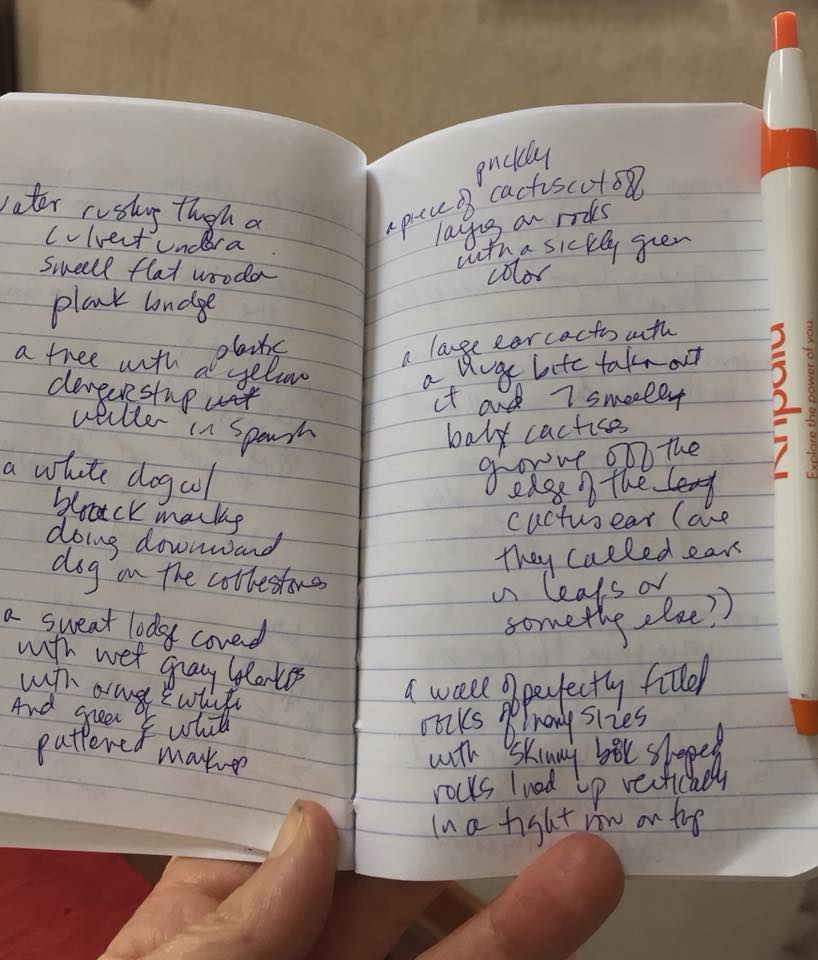 water rushing thrgh a
culvert under a
small flat wooden
plank bridge
a tree with a plastic yellow
danger stop wit
written in Spanish
a white dog w/
black marks
doing downward
dog on the cobblestones
a sweat lodge covered
with wet gray blankets
with orange & white
And green & white
patterned markings
a piece of prickly cactus cut off
laying on rocks
with a sickly green
color
a large ear cactus with
a huge bite taken out
it and 7 smally
baby cactises
growing off the
edge of the leaf
cactus ear (are
they called ears
or leafs or
somethg else?)
a wall of perfectly fitted
rocks of many sizes
with skinny book shaped
rocks lined up vertically
in a tight row on top
Kripalu
Explore the power of you.